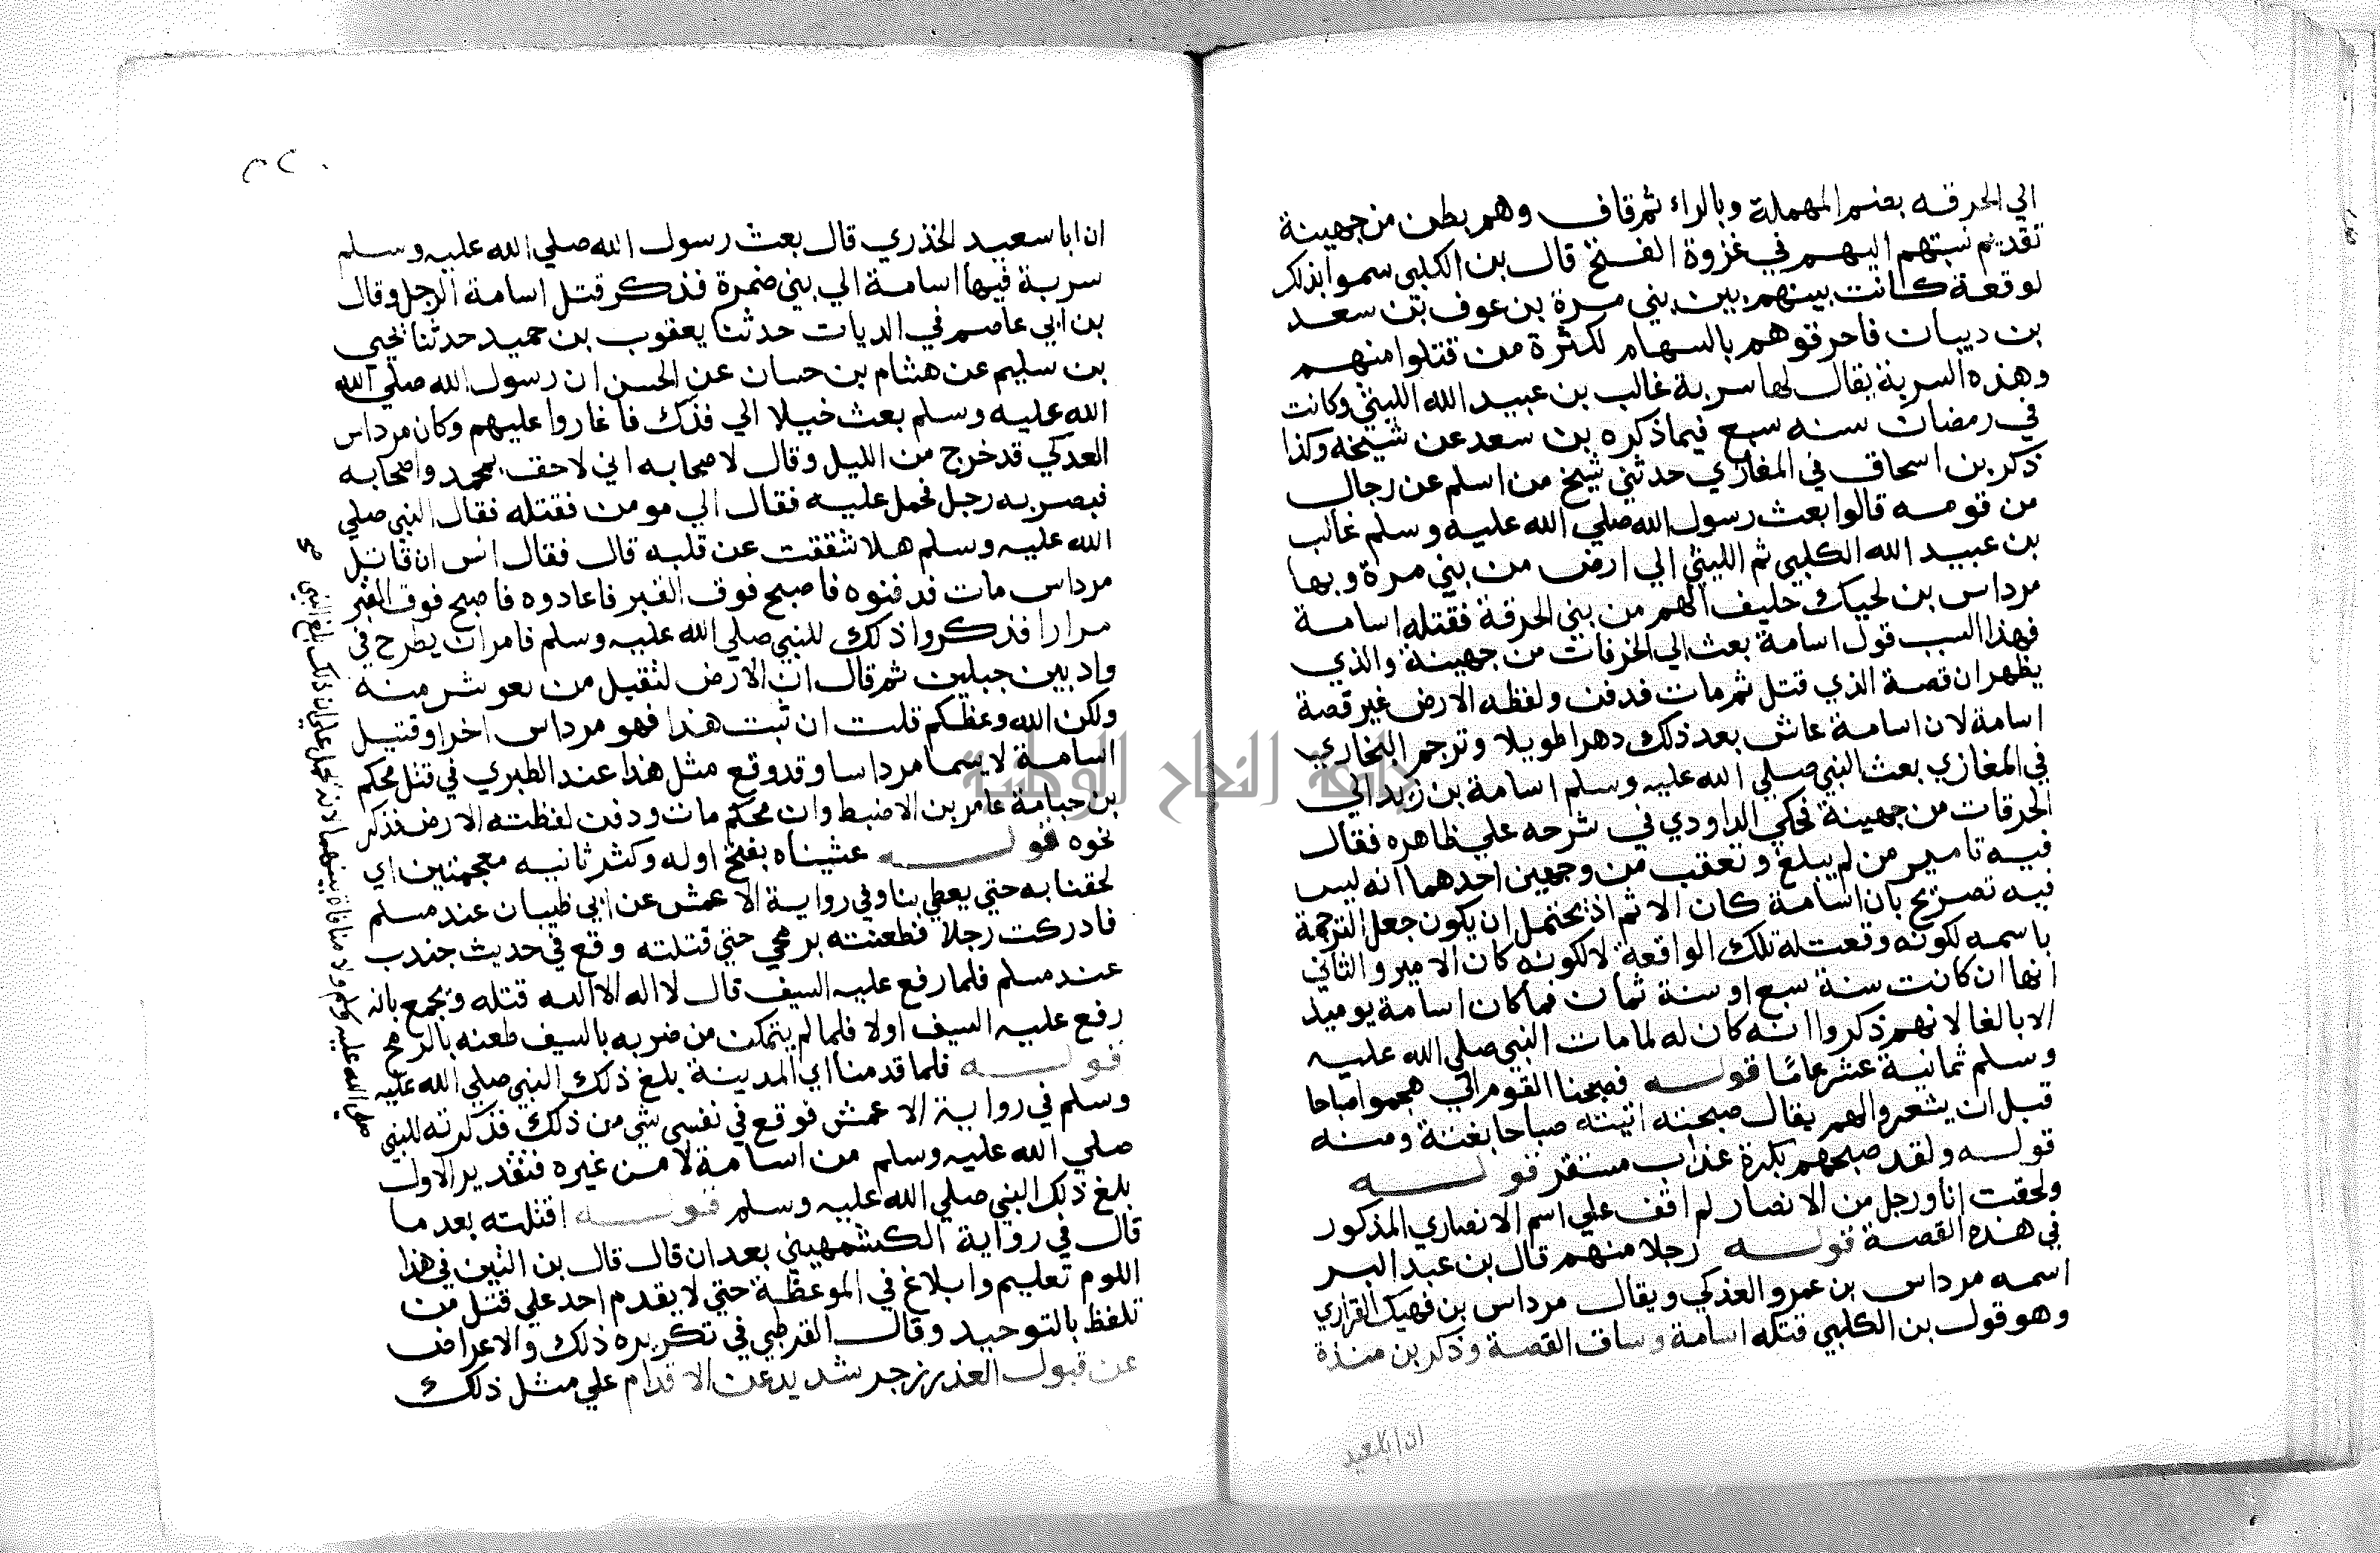 الي الحرقه بضم المهملة وبالراء ثم قاف وهم بطن من جهينة
تقديم نسبتهم اليهم في غزوة الفتح قال بن الكلبي سموا بذلك
لوقعة كانت بينهم بين بني مرة بن عوف بن سعد
بن ديبان فاحرقوهم بالسهام لكثرة من قتلوا منهم
وهذه السرية يقال لها سرية غالب بن عبيد الله الليثي وكانت
في رمضان سنه سبع فيما ذكره بن سعد عن شيخه وكذا
ذكر بن اسحاق في المغازي حدثني شيخ من اسلم عن رجال
من قومه قالوا بعث رسول الله صلي الله عليه وسلم غالب
بن عبيد الله الكلبي ثم الليثي الي ارض من بني مرة وبها
مرداس بن لحيك حليف الهم من بني الحرقة فقتله اسامة
فهذا السبب قول اسامة بعث الي الحرقات من جهينة والذي
يظهر ان قصة الذي قتل ثم مات فدفن ولفظه الارض غير قصة
اسامة لان اسامة عاش بعد ذلك دهرا طويلا وترجم البخاري
في المغازي بعث النبي صلي الله عليه وسلم اسامة بن زيد الي
الحرقات من جهينة فحكي الداودي في شرحه علي ظاهره فقال
فيه تامير من لم يبلغ وتعقب من وجهين احدهما انه ليس
فيه تصريح بان اسامة كان الاثم اذ يحتمل ان يكون جعل الترجمة
باسمه لكونه وقعت له تلك الواقعة لا لكونه كان الامير والثاني
انها ان كانت سنة سبع او سنة ثمان فما كان اسامة يوميد
الا بالغا لانهم ذكروا انه كان له لما مات النبي صلي الله عليه
وسلم ثمانية عشر عامًا قوله فصبحنا القوم الي هجموا مباحا
قبل ان يشعروا الهم يقال صبحته اتيته صباحا بغتة ومنه
قوله ولقد صبحهم بكرة عذاب مستقر قوله
ولحقت انا ورجل من الانصار لم اقف علي اسم الانصاري المذكور
في هذه القصة قوله رجلا منهم قال بن عبد البر
اسمه مرداس بن عمرو العذكي ويقال مرداس بن فهيك القزاري
وهو قول بن الكلبي قتله اسامة وساق القصة وذكر بن منذة
ان ابا سعيد
ان ابا سعيد الخذري قال بعث رسول الله صلي الله عليه وسلم
سرية فيها اسامة الي بني ضمرة فذكر قتل اسامة الرجل وقال
بن ابي عاصم في الديات حدثنا يعقوب بن حميد حدثنا يحيي
بن سليم عن هشام بن حسان عن الحسن ان رسول الله صلي الله
الله عليه وسلم بعث خيلا الي فدك فاغاروا عليهم وكان مرداس
العدكي قد خرج من الليل وقال لاصحابه اني لاحق بمحمد واصحابه
فبصر به رجل فحمل عليه فقال الي مومن فقتله فقال النبي صلي
الله عليه وسلم هلا شققت عن قلبه قال فقال انس ان قاتل
مرداس مات فدفنوه فاصبح فوق القبر فاعادوه فاصبح فوق القبر
مرارا فذكروا ذلك للنبي صلي الله عليه وسلم فامر ان يطرح في
واد بين جبلين ثم قال ان الارض لتقبل من بعو شر منه
ولكن الله وعظكم قلت ان ثبت هذا فهو مرداس اخر او قتيل
اسامة لا يسما مرداسا وقد وقع مثل هذا عند الطبري في قتل محكم
بن حبامة عامر بن الاضبط وان محكم مات ودفن لفظته الارض فذكر
نحوه قوله عشيناه بفتح اوله وكثر ثانيه معجمتين اي
لحقنا به حتي يعطي بنا وفي رواية الاعمش عن ابي ظيبان عند مسلم
فادركت رجلا فطعنته برمحي حتي قتلته وقع في حديث جندب
عند مسلم فلما رفع عليه السيف قال لا اله الا الله قتله ويجمع بانه
رفع عليه السيف اولا فلما لم يتمكن من ضربه بالسيف طعنه بالرمح
قوله فلما قدمنا اي المدينة بلغ ذلك النبي صلي الله عليه
وسلم في رواية الاعمش فوقع في نفسي شي من ذلك فذكرته للنبي
صلي الله عليه وسلم من اسامة لا من غيره فتقدير الاول
بلغ ذلك النبي صلي الله عليه وسلم قوله اقتلته بعد ما
قال في رواية الكشمهيني بعد ان قال قال بن التين في هذا
اللوم تعليم وابلاغ في الموعظة حتي لا يقدم احد علي قتل من
تلفظ بالتوحيد وقال القرطبي في تكريره ذلك والاعراض
عن قبول العذر زجر شديد عن الاقدام علي مثل ذلك
صلي الله عليه وسلم ولا منافاة بينهما لانه يحمل علي ان ذلك بلغ النبي
جامعة النجاح الوطنية